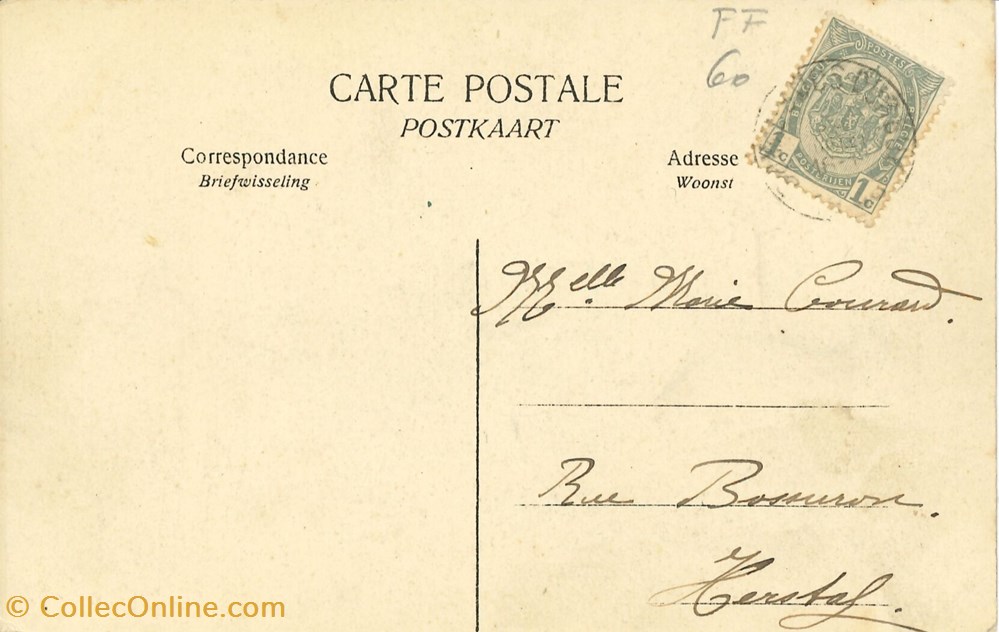 FF
60
CARTE POSTALE
POSTKAART
Correspondance
Briefwisseling
Adresse
Woonst
POSTES
POSTERIJEN
1c 1c
Melle. Marie Gourard.
Rue Bosseron.
Herstal.
© CollecOnline.com